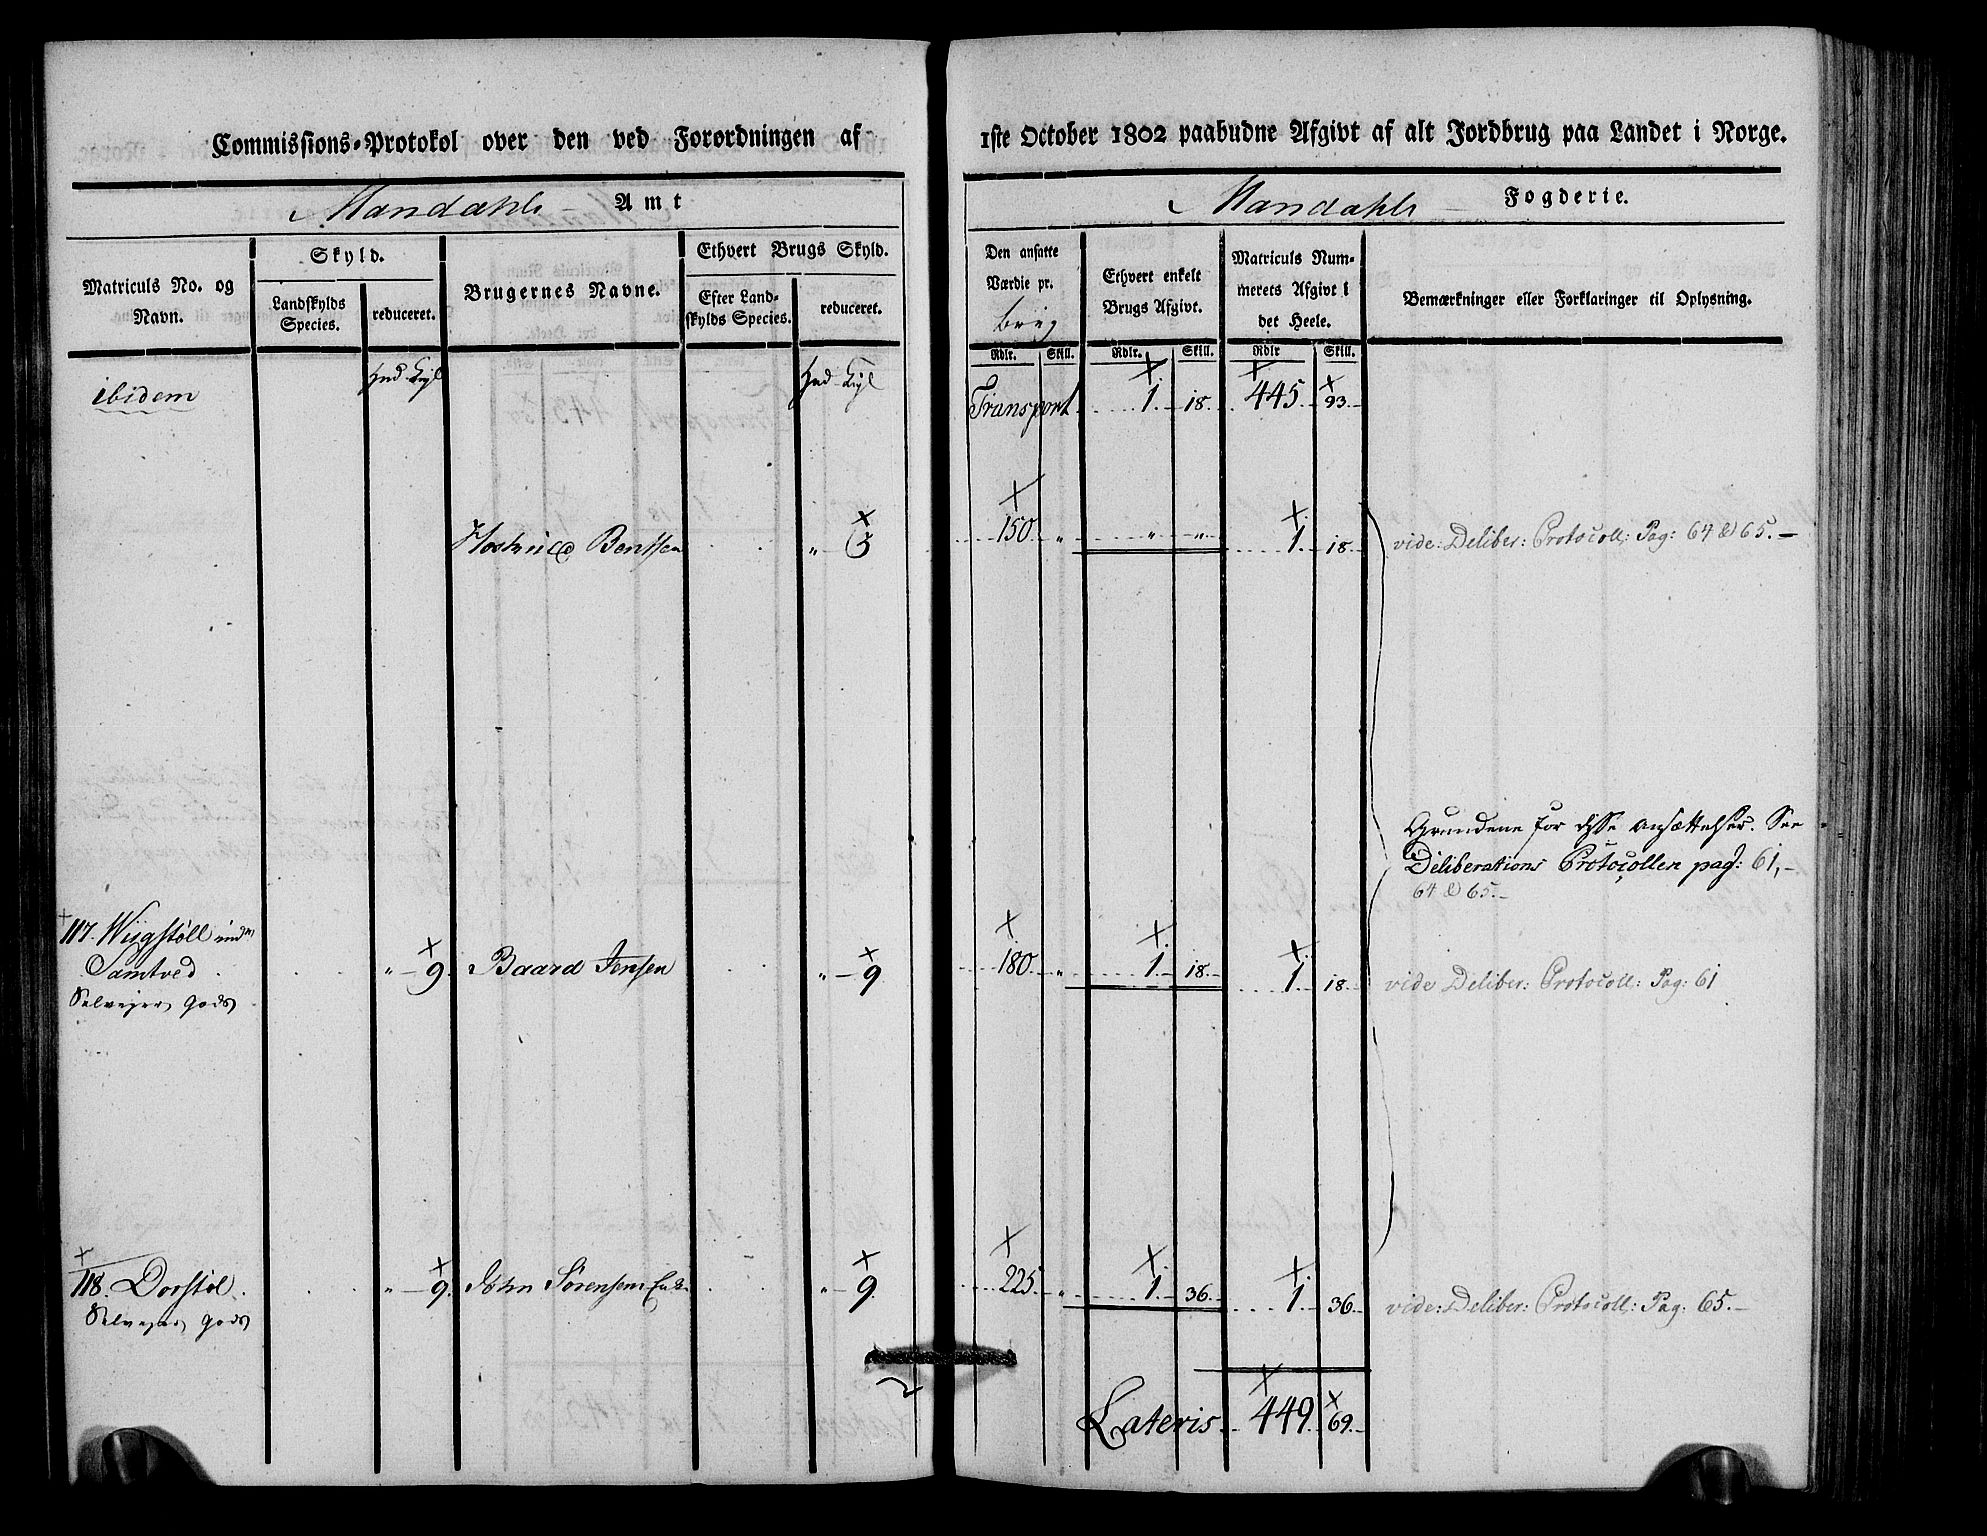 Commissions-Protokol over den ved Forordningen af
Mandahls Amt
Matriculs No. og Navn.
Skyld.
Landskylds Species.
reduceret.
Brugernes Navne.
Ethvert Brugs Skyld.
Efter Landskylds Species.
reduceret.
ibidem
Hud. Hud.
Bentsen " 3
117. Wiigstöll
Samtved " 9 Baard Jensen " 9
Selvejer Gods
118. Dovstöl " 9 John Sörensens Enke " 9
Selvejer Gods
1ste October 1802 paabudne Afgivt af alt Jordbrug paa Landet i Norge.
Mandahls Fogderie.
Den ansatte Værdie pr. brug
Ethvert enkelt Brugs Afgivt.
Matriculs Nummerets Afgivt i det Heele.
Bemærkninger eller Forklaringer til Oplysning.
Rdlr. Skill. Rdlr. Skill. Rdlr Skill.
Transport 1. 18. 445. 93.
150 " " " 1. 18. vide: Deliber: Protocoll: Pag: 64 & 65.
Grundene for disse ansættelser. See
Deliberations Protocollen pag: 61,
64 & 65.
180 " 1. 18. 1. 18. vide Deliber: Protocoll: Pag: 61
225 " 1. 36. 1. 36. vide: Deliber: Protocoll: Pag: 65.
Lateris 449. 69.